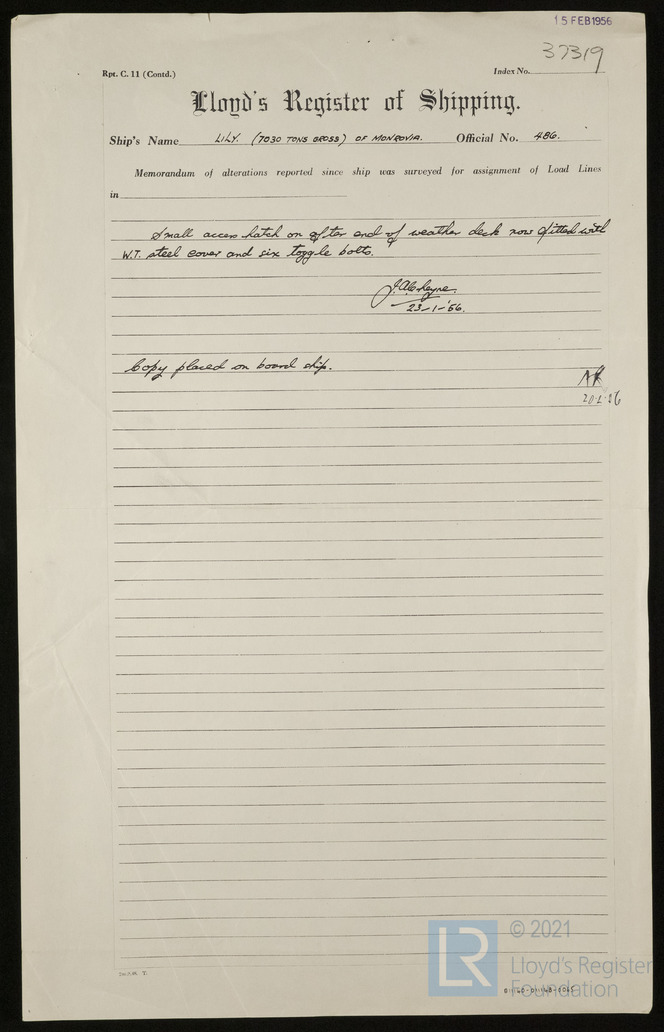 15 FEB 1956
37319
Rpt. C. 11 (Contd.)
Index No.
Lloyd's Register of Shipping.
Ship's Name LILY. (7030 TONS GROSS) OF MONROVIA. Official No. 486.
Memorandum of alterations reported since ship was surveyed for assignment of Load Lines
in
Small access hatch on after end of weather deck now fitted with
W.T. steel cover and six toggle bolts.
23-1-'56.
Copy placed on board ship.
© 2021
LR
Lloyd's Register
Foundation